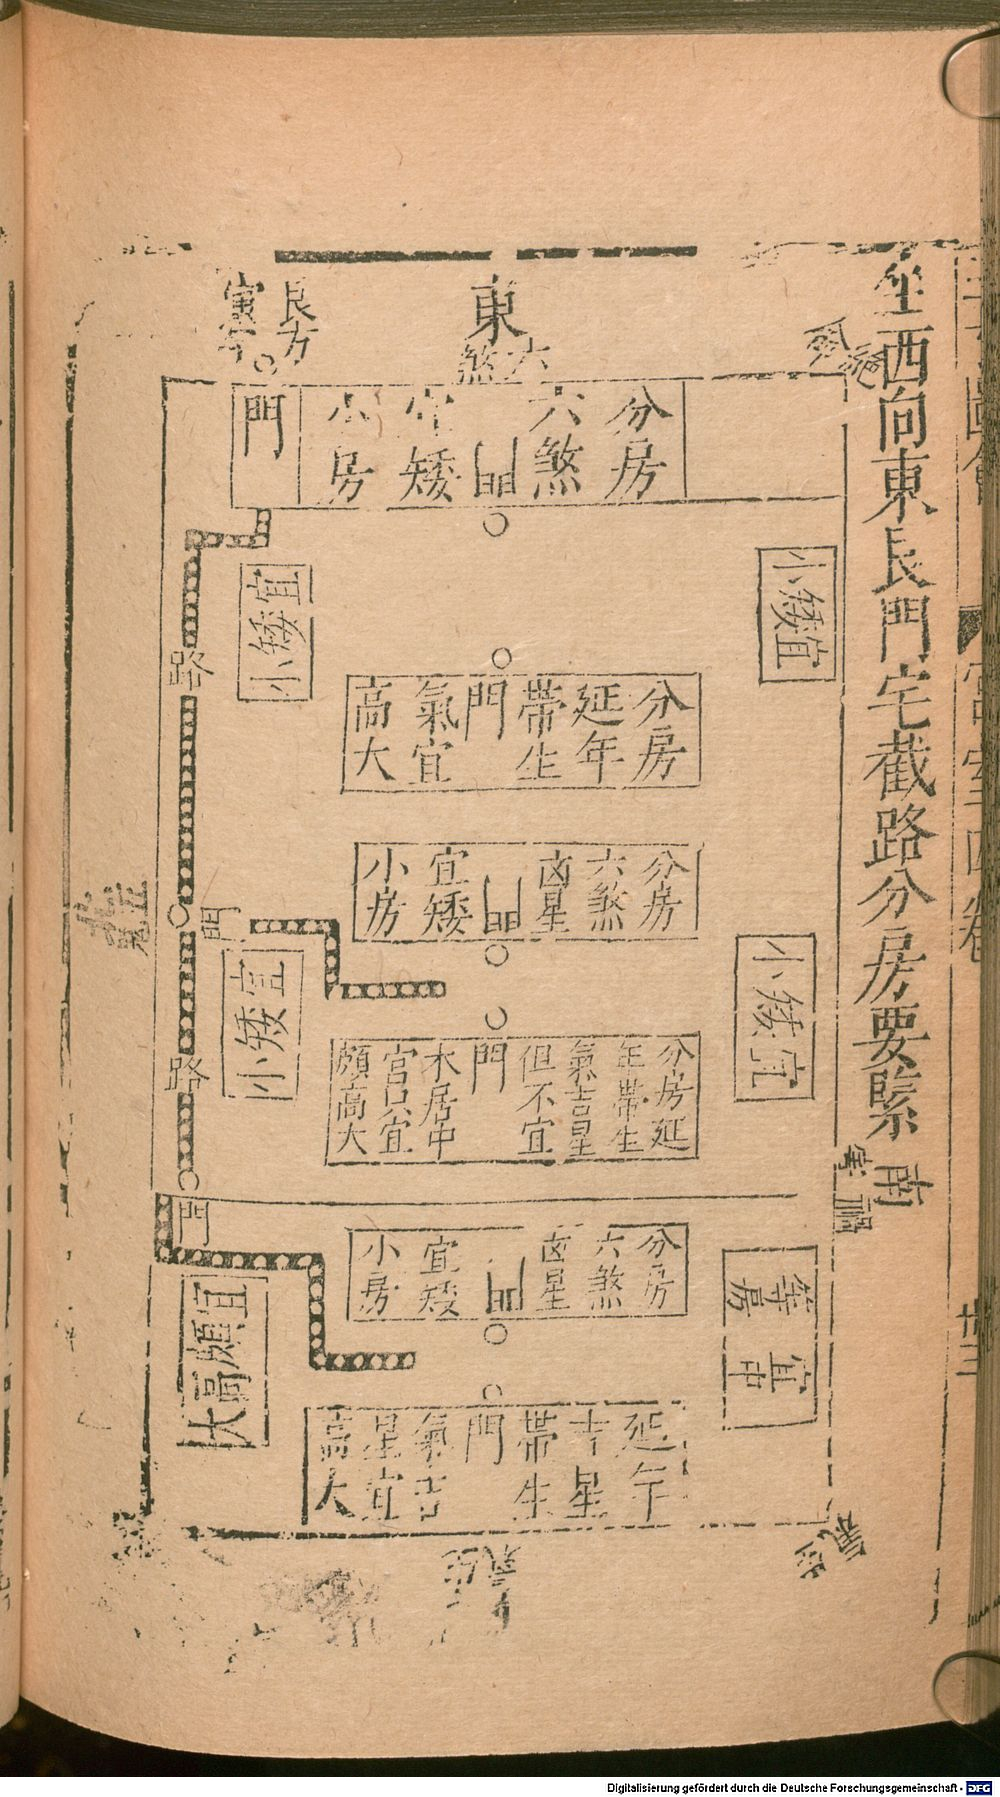 坐西向東艮門宅截路分房要緊
宮室四卷
卅三
南
東
六煞
艮方
門
分房
六煞
門
宜矮
小房
小矮宜
宜矮小
路
分房
延年
帶生
門
氣宜
高大
分房
六煞
凶星
門
宜矮
小房
門
小矮宜
宜矮小
路
分房延
年帶生
氣吉星
但不宜
門
木居中
宮只宜
頗高大
北
五鬼
門
分房
六煞
凶星
門
宜矮
小房
等房
宜中
宜頗高大
延年
吉星
帶生
門
氣吉
星宜
高大
Digitalisierung gefördert durch die Deutsche Forschungsgemeinschaft - DFG